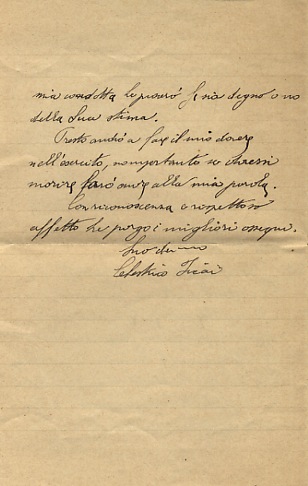 mia condotta le proverò se sia degno o no
della Sua stima.
Presto andrò a far il mio dovere
nell'esercito, non importante se dovessi
morire farò onore alla mia parola.
Con riconoscenza e rispettoso
affetto Le porgo i migliori ossequi.
Suo dev.mo
Celestino